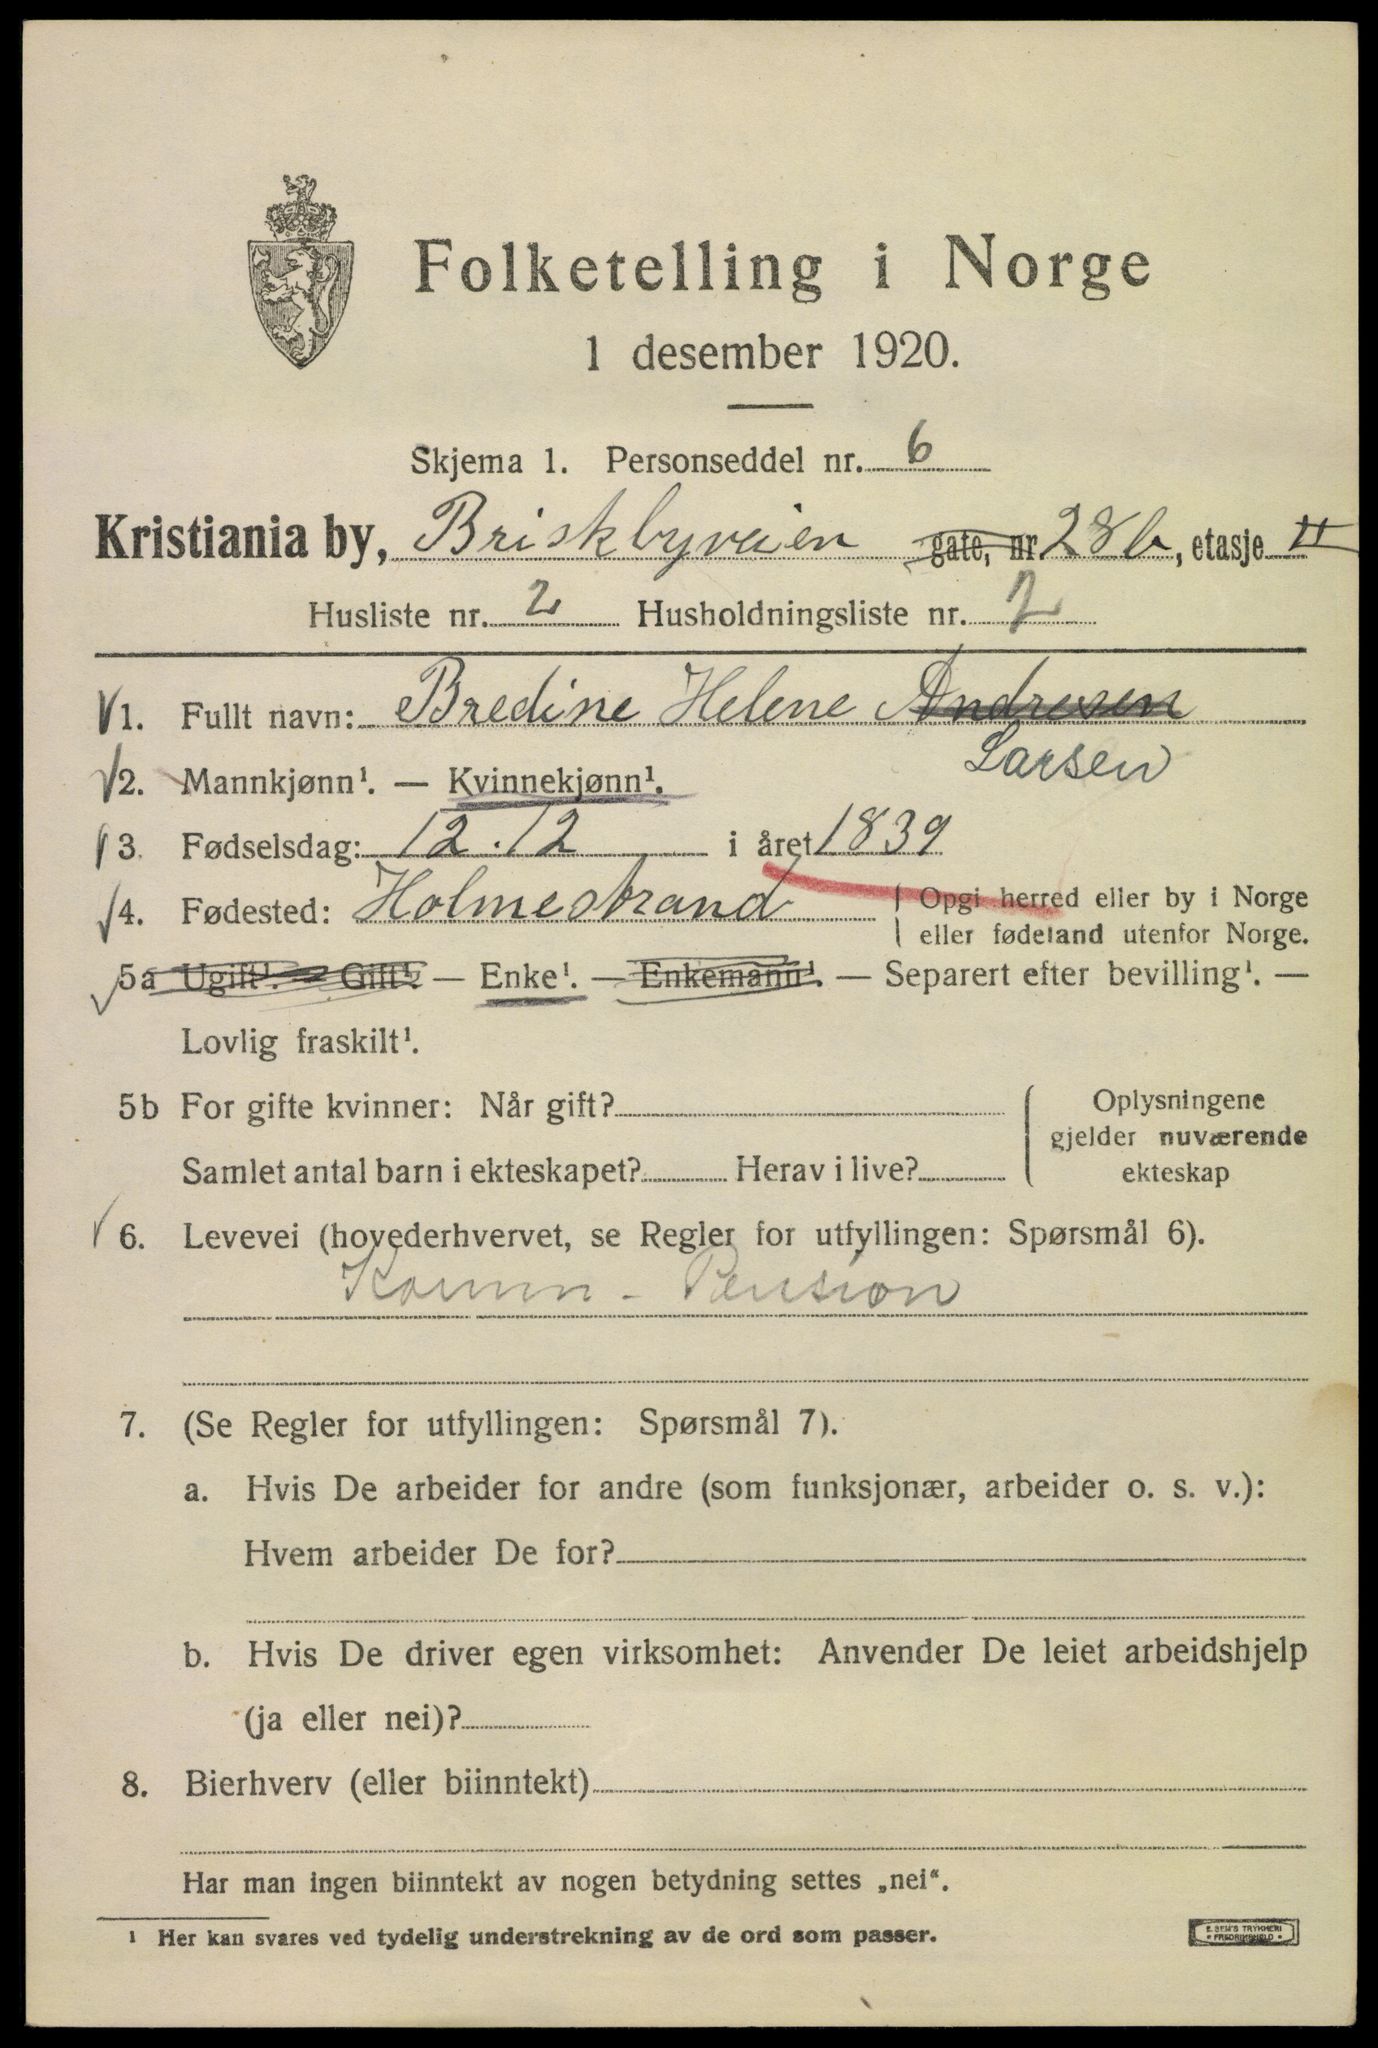 Folketelling i Norge
1 desember 1920.
Skjema 1. Personseddel nr. 6
Kristiania by, Briskbyveien gate, nr 28b, etasje II
Husliste nr. 2 Husholdningsliste nr. 2
1. Fullt navn: Bredine Helene Andresen
Larsen
2. Mannkjønn¹. — Kvinnekjønn¹.
3. Fødselsdag: 12.12 i året 1839
4. Fødested: Holmestrand Opgi herred eller by i Norge
eller fødeland utenfor Norge.
5a Ugift¹. — Gift¹. — Enke¹. — Enkemann¹. — Separert efter bevilling¹. —
Lovlig fraskilt¹.
5b For gifte kvinner: Når gift?
Samlet antal barn i ekteskapet? Herav i live?
Oplysningene
gjelder nuværende
ekteskap
6. Levevei (hovederhvervet, se Regler for utfyllingen: Spørsmål 6).
Komm - Pension
7. (Se Regler for utfyllingen: Spørsmål 7).
a. Hvis De arbeider for andre (som funksjonær, arbeider o. s. v.):
Hvem arbeider De for?
b. Hvis De driver egen virksomhet: Anvender De leiet arbeidshjelp
(ja eller nei)?
8. Bierhverv (eller biinntekt)
Har man ingen biinntekt av nogen betydning settes „nei“.
¹ Her kan svares ved tydelig understrekning av de ord som passer.
E. SEM'S TRYKKERI
• FREDRIKSHALD •